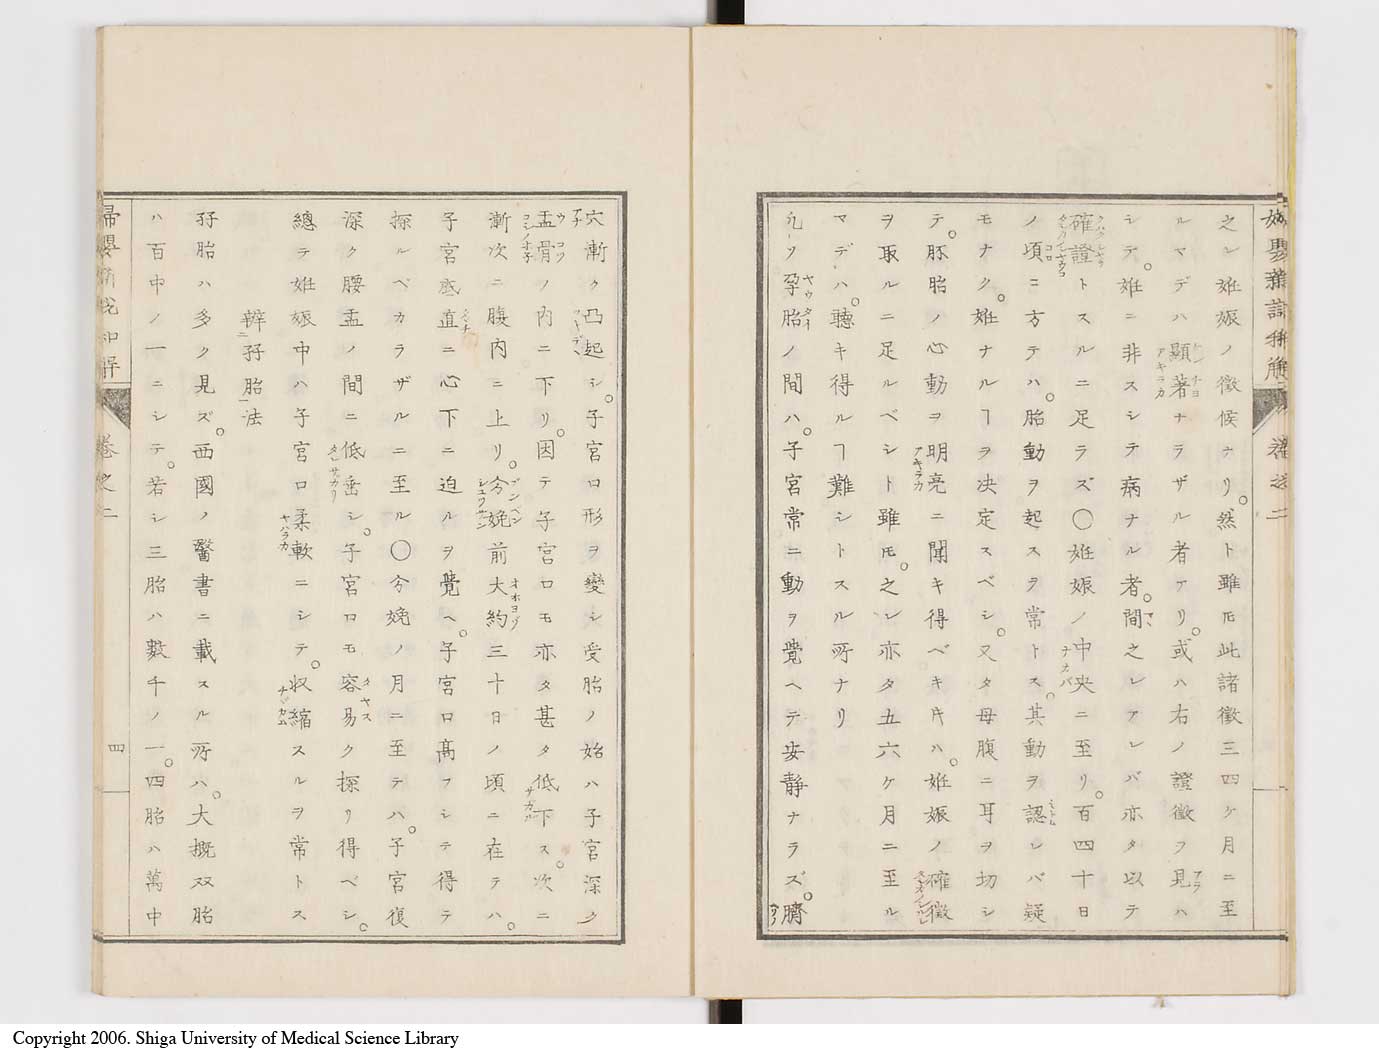 之レ姙娠ノ徴候ナリ。然ト雖𪜈此諸徴三四ケ月ニ至
ルマデハ顯著ナラザル者アリ。或ハ右ノ證徴ヲ見ハ
シテ。姙ニ非スシテ病ナル者。間之レアレバ亦タ以テ
確證トスルニ足ラズ〇姙娠ノ中央ニ至リ。百四十日
ノ頃ニ方テハ。胎動ヲ起スヲ常トス。其動ヲ認レバ疑
モナク。姙ナルヿヲ决定スベシ。又タ母腹ニ耳ヲ切シ
テ。胚胎ノ心動ヲ明亮ニ聞キ得ベキ𪜈ハ。姙娠ノ確徴
ヲ取ルニ足ルベシト雖𪜈。之レ亦タ五六ケ月ニ至ル
マデハ。聽キ得ルヿ難シトスル所ナリ
凡ソ孕胎ノ間ハ。子宮常ニ動ヲ覺ヘテ安静ナラズ。臍
穴漸ク凸起シ。子宮口形ヲ變シ受胎ノ始ハ子宮深ク
盂骨ノ内ニ下リ。因テ子宮口モ亦タ甚タ低下ス。次ニ
漸次ニ腹内ニ上リ。分娩前大約三十日ノ頃ニ在テハ。
子宮底直ニ心下ニ迫ルヲ覺ヘ。子宮口高フシテ得テ
探ルベカラザルニ至ル〇分娩ノ月ニ至テハ。子宮復
深ク腰盂ノ間ニ低垂シ。子宮口モ容易ク探リ得ベシ。
總テ姙娠中ハ子宮口柔軟ニシテ。収縮スルヲ常トス
辨孖胎法
孖胎ハ多ク見ズ。西國ノ醫書ニ載スル所ハ。大概双胎
ハ百中ノ一ニシテ。若シ三胎ハ數千ノ一。四胎ハ萬中
卷之二
四